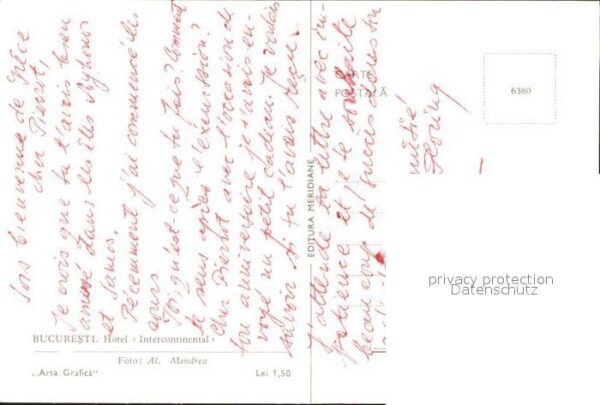 Sois bienvenue de Grèce
cher Pierrot,
Je crois que tu t'avais bien
amusé dans les îles
et Samos.
Récemment j'ai commencé les
cours
Toi qu'est-ce que tu fais? Comment
te sens après l'excursion?
Cher Pierrot avec l'occasion de
ton anniversaire je t'avais en-
voyé un petit cadeau. Je voulais
savoir si tu l'avais reçu.
J'attends ta lettre avec im-
patience et je te souhaite
beaucoup de succès
mitié
CARTE
POȘTALĂ
6380
EDITURA MERIDIANE
BUCUREȘTI. Hotel « Intercontinental »
Foto: Al. Mendrea
„Arta Grafică“
Lei 1,50
privacy protection
Datenschutz